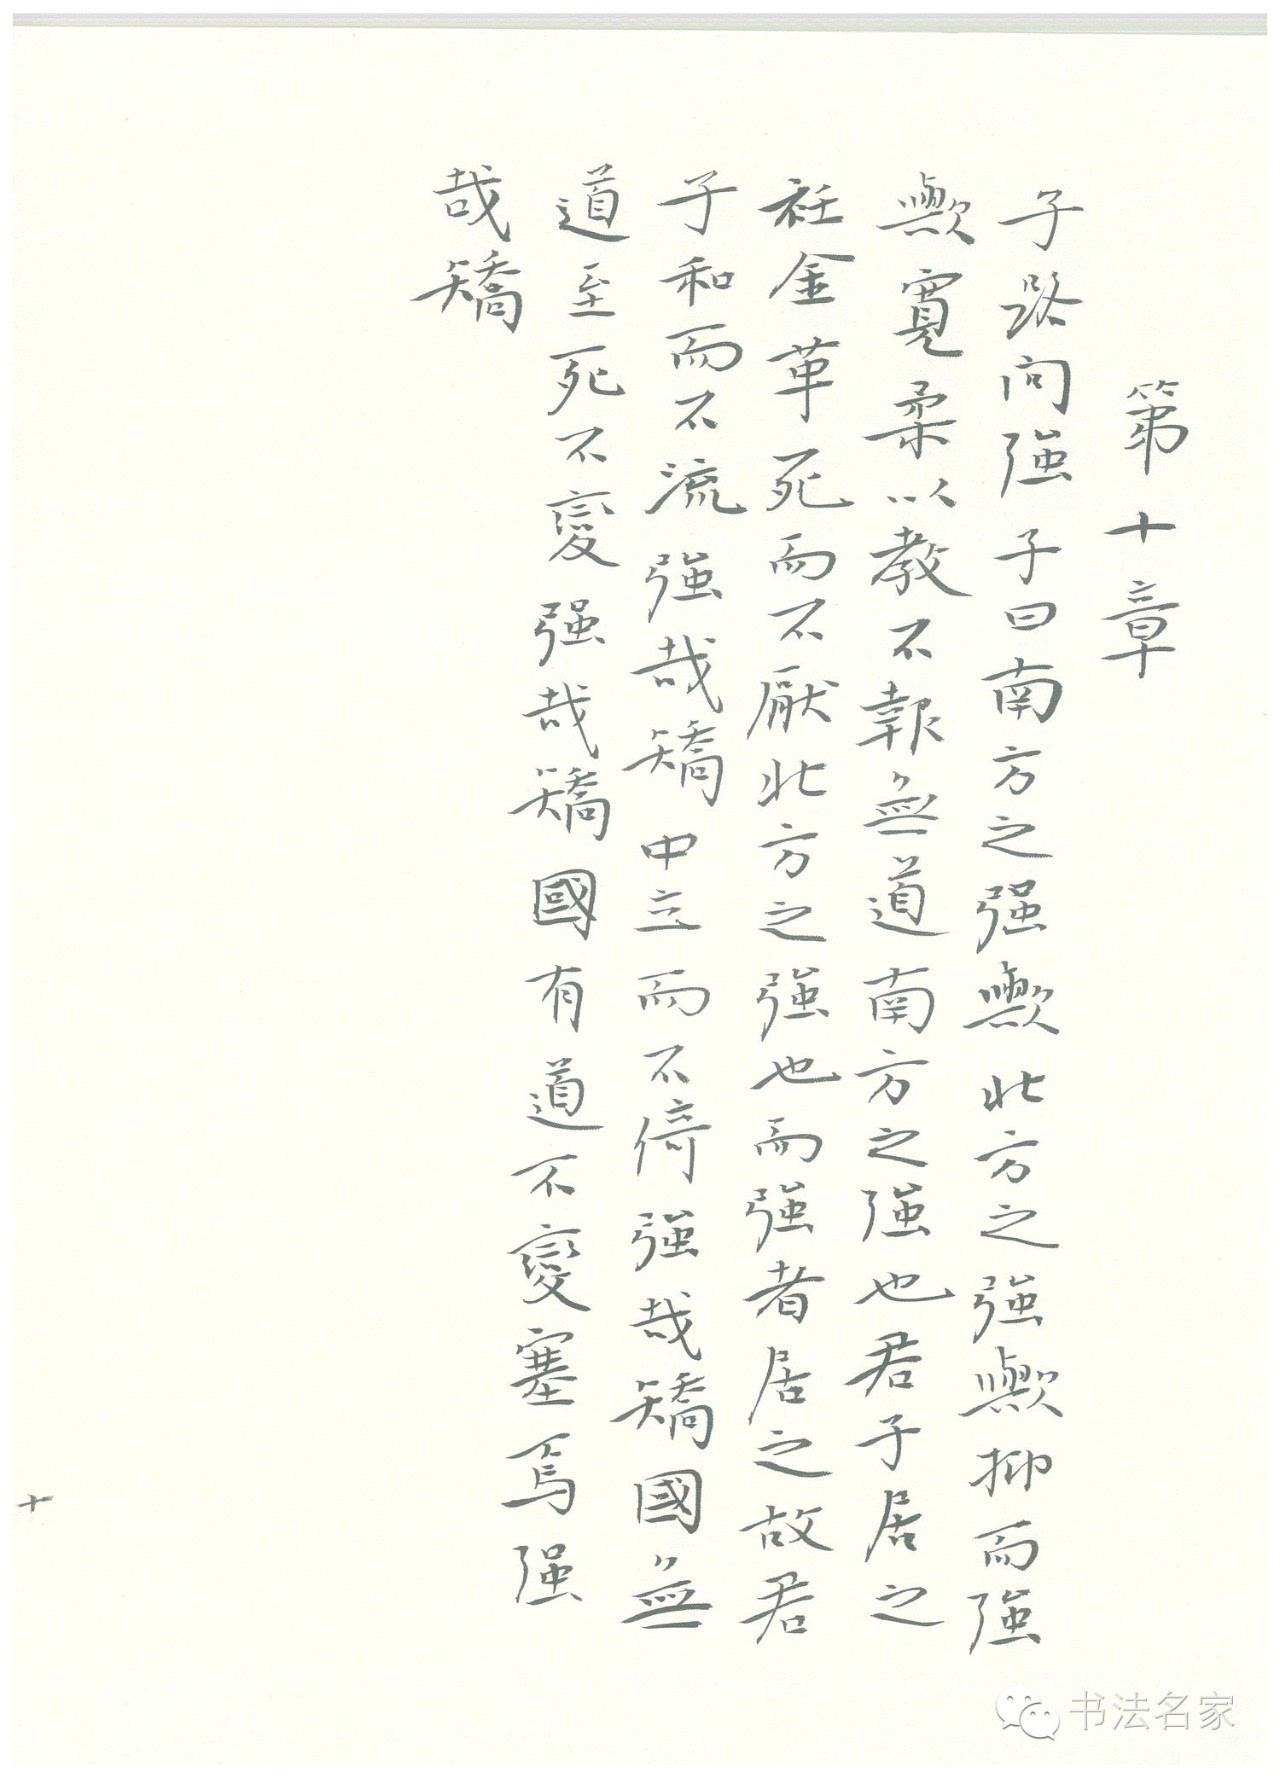 第十章
子路问強子曰南方之强歟北方之強歟抑而強
歟寬柔以教不報無道南方之強也君子居之
衽金革死而不厭北方之強也而強者居之故君
子和而不流強哉矯中立而不倚強哉矯國無
道至死不變强哉矯國有道不變塞焉强
哉矯
十
书法名家